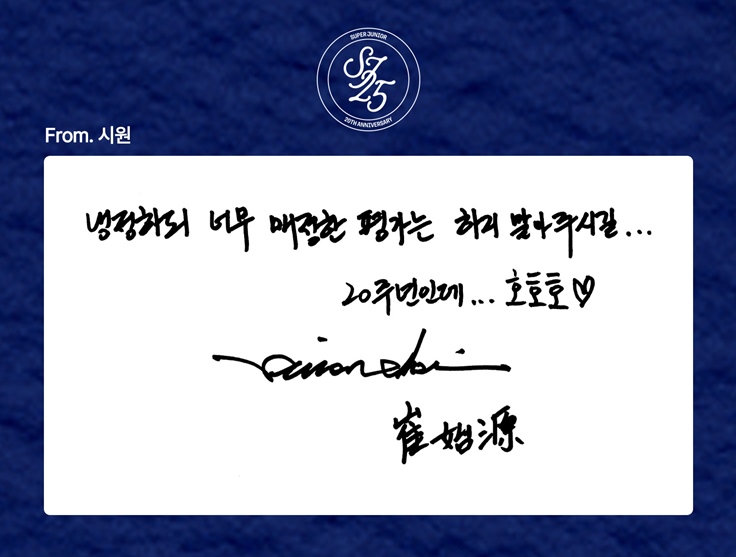 SUPER JUNIOR
SJ
25
20TH ANNIVERSARY
From. 시원
냉정하되 너무 매정한 평가는 하지 말아주시길...
20주년인데... 호호호♡
崔始源